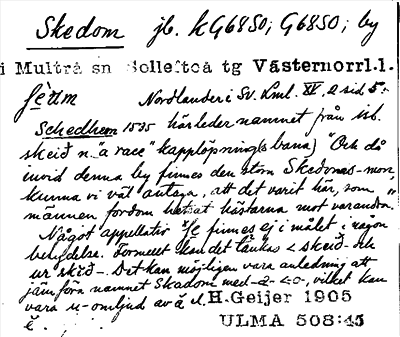 Skedom jb. k G6850; G6850; by
i Multrå sn Sollefteå tg Västernorrl.l.
Nordlander i Sv. Lml. XV, 2 sid 5.
Schedhem 1535 härleder namnet från isl.
skeið n. "a race" kapplöpning(s bana) "Och då
invid denna by finnes den stora Skedoms-mon,
kunna vi väl antaga, att det varit här, som
männen fordom hetsat hästarna mot varandra."
Något appellativ finnes ej i målet i någon
betydelse. Formellt kan det tänkas < skeið- och
ur skið-. Det kan möjligen vara anledning att
jämföra namnet Skadom med -a- <-o-, vilket kan
vara u-omljud av ā l.
H. Geijer 1905
ULMA 508:45